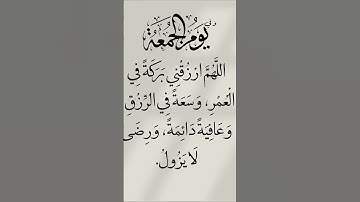 وفي
يَوْمُ الْجُمُعَةِ
اللَّهُمَّ ارْزُقْنِي بَرَكَةً فِي
الْعُمْرِ، وَسَعَةً فِي الرِّزْقِ
وَعَافِيَةً دَائِمَةً، وَرِضَى
لَا يَزُولُ.